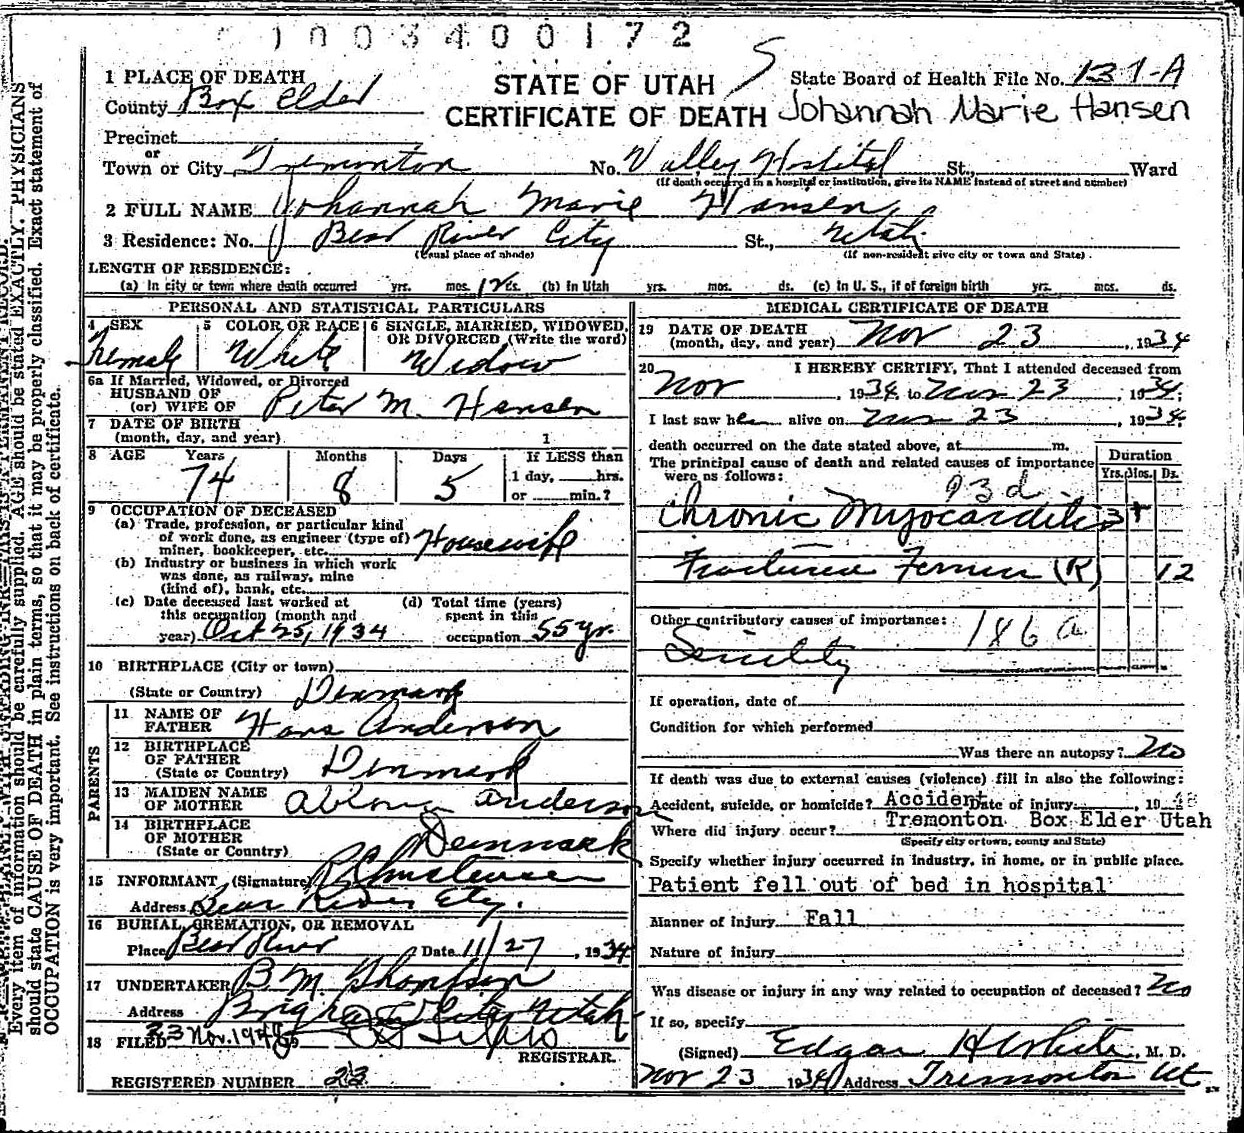 1003400172
1 PLACE OF DEATH
County Box Elder
STATE OF UTAH
CERTIFICATE OF DEATH
State Board of Health File No. 131-A
Johannah Marie Hansen
Precinct
or
Town or City Tremonton No. Valley Hospital St., Ward
(If death occurred in a hospital or institution, give its NAME instead of street and number)
2 FULL NAME Johannah Marie Hansen
3 Residence: No. Bear River City St., Utah
(Usual place of abode) (If non-resident give city or town and State)
LENGTH OF RESIDENCE:
(a) In city or town where death occurred yrs. mos. 12 ds. (b) In Utah yrs. mos. ds. (c) In U. S., if of foreign birth yrs. mos. ds.
PERSONAL AND STATISTICAL PARTICULARS
4 SEX Female
5 COLOR OR RACE White
6 SINGLE, MARRIED, WIDOWED, OR DIVORCED (Write the word) Widow
6a If Married, Widowed, or Divorced
HUSBAND OF
(or) WIFE OF Peter M. Hansen
7 DATE OF BIRTH
(month, day, and year) 1
8 AGE Years 74 Months 8 Days 5 If LESS than
1 day, hrs.
or min.?
9 OCCUPATION OF DECEASED
(a) Trade, profession, or particular kind
of work done, as engineer (type of)
miner, bookkeeper, etc. Housewife
(b) Industry or business in which work
was done, as railway, mine
(kind of), bank, etc.
(c) Date deceased last worked at
this occupation (month and
year) Oct 25, 1934
(d) Total time (years)
spent in this
occupation 55 yr.
10 BIRTHPLACE (City or town)
(State or Country) Denmark
PARENTS
11 NAME OF
FATHER Hans Anderson
12 BIRTHPLACE
OF FATHER
(State or Country) Denmark
13 MAIDEN NAME
OF MOTHER Anderson
14 BIRTHPLACE
OF MOTHER
(State or Country) Denmark
15 INFORMANT (Signature) Christensen
Address Bear River City.
16 BURIAL, CREMATION, OR REMOVAL
Place Bear River Date 11/27, 1934
17 UNDERTAKER B M Thompson
Address Brigham City Utah
18 FILED 23 Nov. 1948
REGISTRAR.
REGISTERED NUMBER 23
MEDICAL CERTIFICATE OF DEATH
19 DATE OF DEATH
(month, day, and year) Nov 23, 1934
20 I HEREBY CERTIFY, That I attended deceased from
Nov, 1934 to Nov 23, 1934;
I last saw her alive on Nov 23, 1934.
death occurred on the date stated above, at m.
The principal cause of death and related causes of importance
were as follows:
Duration
Yrs. Mos. Ds.
93d
Chronic Myocarditis 3 +
Fractured Femur (R) 12
Other contributory causes of importance: 186a
Senility
If operation, date of
Condition for which performed
Was there an autopsy? No
If death was due to external causes (violence) fill in also the following:
Accident, suicide, or homicide? Accident Date of injury , 19
Where did injury occur? Tremonton Box Elder Utah
(Specify city or town, county and State)
Specify whether injury occurred in industry, in home, or in public place.
Patient fell out of bed in hospital
Manner of injury Fall
Nature of injury
Was disease or injury in any way related to occupation of deceased? No
If so, specify
(Signed) Edgar H White, M. D.
Nov 23 1934 Address Tremonton Ut
Every item of information should be carefully supplied. AGE should be stated EXACTLY. PHYSICIANS
should state CAUSE OF DEATH in plain terms, so that it may be properly classified. Exact statement of
OCCUPATION is very important. See instructions on back of certificate.